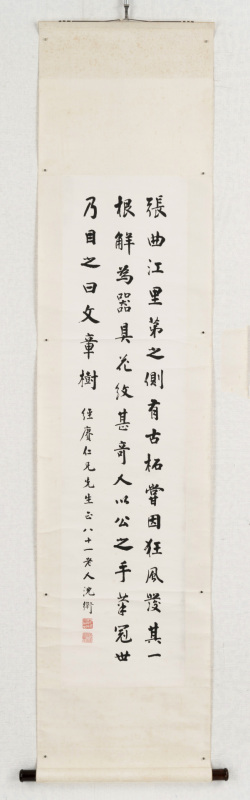 張曲江里第之側有古柘嘗因狂風發其一
根解為器具花紋甚奇人以公之手筆冠世
乃目之曰文章樹
經賡仁兄先生正八十一老人沈衛